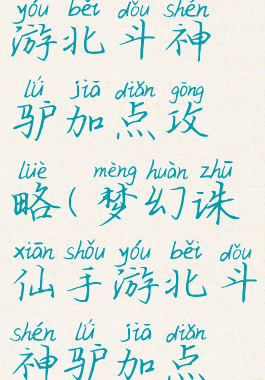 yóu běi dǒu shén
游北斗神
lǘ jiā diǎn gōng
驴加点攻
lüè mèng huàn zhū
略(梦幻诛
xiān shǒu yóu běi dǒu
仙手游北斗
shén lǘ jiā diǎn
神驴加点